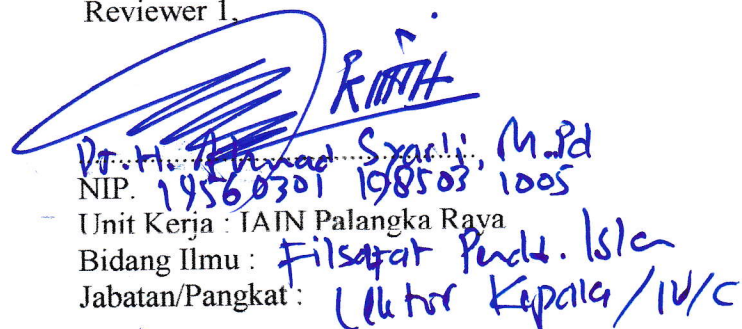 Reviewer 1,
Dr. H. Ahmad Syar'i, M.Pd
NIP. 19560301 198503 1005
Unit Kerja : IAIN Palangka Raya
Bidang Ilmu : Filsafat Pendd. Islam
Jabatan/Pangkat : Lektor Kepala / IV/C